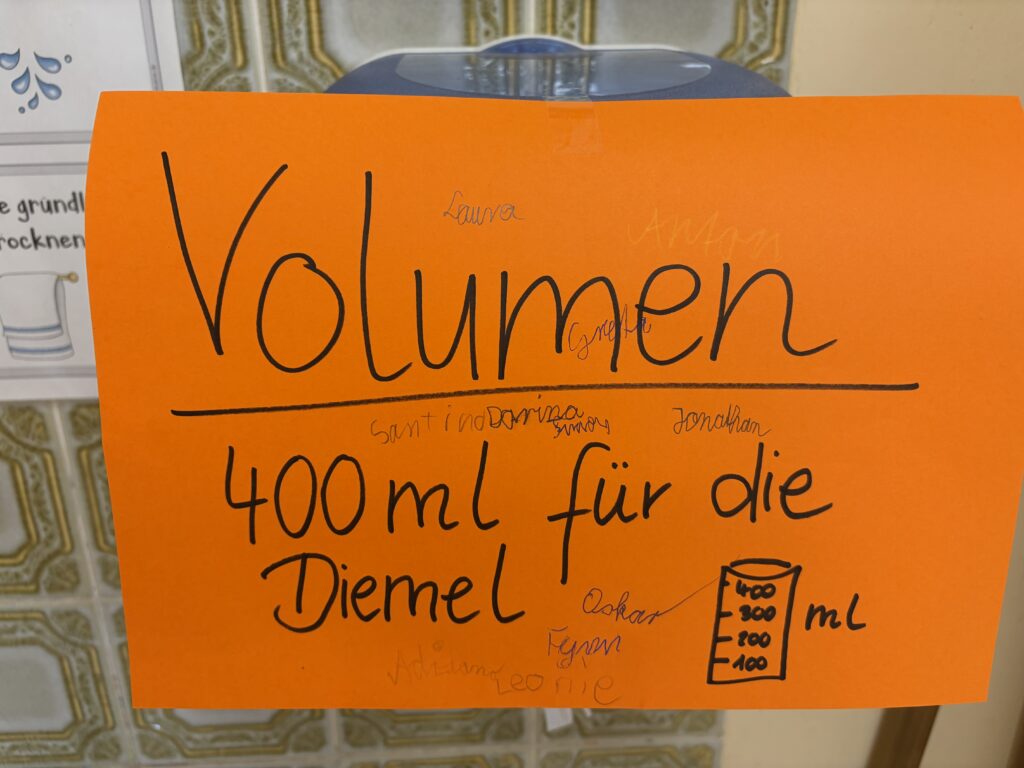 e gründl
rocknen
Laura
Anton
Volumen
Greta
Santino Darina Simon Jonathan
400 ml für die
Diemel
Oskar
400
300
200
100
ml
Fynn
Leonie